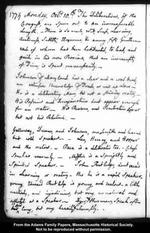 1774 Monday. Octr. 10th. The Deliberations of the
Congress, are spun out to an immeasurable
Length. There is so much Wit, Sense, Learning,
Acuteness, Subtlety, Eloquence, &c. among fifty Gentlemen,
each of whom has been habituated to lead and
guide in his own Province, that an immensity
of Time, is spent unnecessarily.
Johnson of Maryland has a clear and a cool head,
an extensive Knowledge of Trade, as well as Law.
He is a deliberating Man, but not a shining orator.
His Passions and Imagination dont appear enough
for an orator. His Reason and Penetration appear,
but not his Rhetoric.
Galloway, Duane, and Johnson, are sensible and learned
but cold Speakers. Lee, Henry, and Hooper
are the orators. Paca is a deliberater too. Chase
speaks warmly. Mifflin is a sprightly and
spirited Speaker. John Rutledge dont exceed
in Learning or oratory, tho he is a rapid Speaker.
Young Edward Rutledge is young, and zealous, a little
unsteady, and injudicious, but very
as a Speaker.
From the Adams Family Papers, Massachusetts Historical Society.
Not to be reproduced without permission.